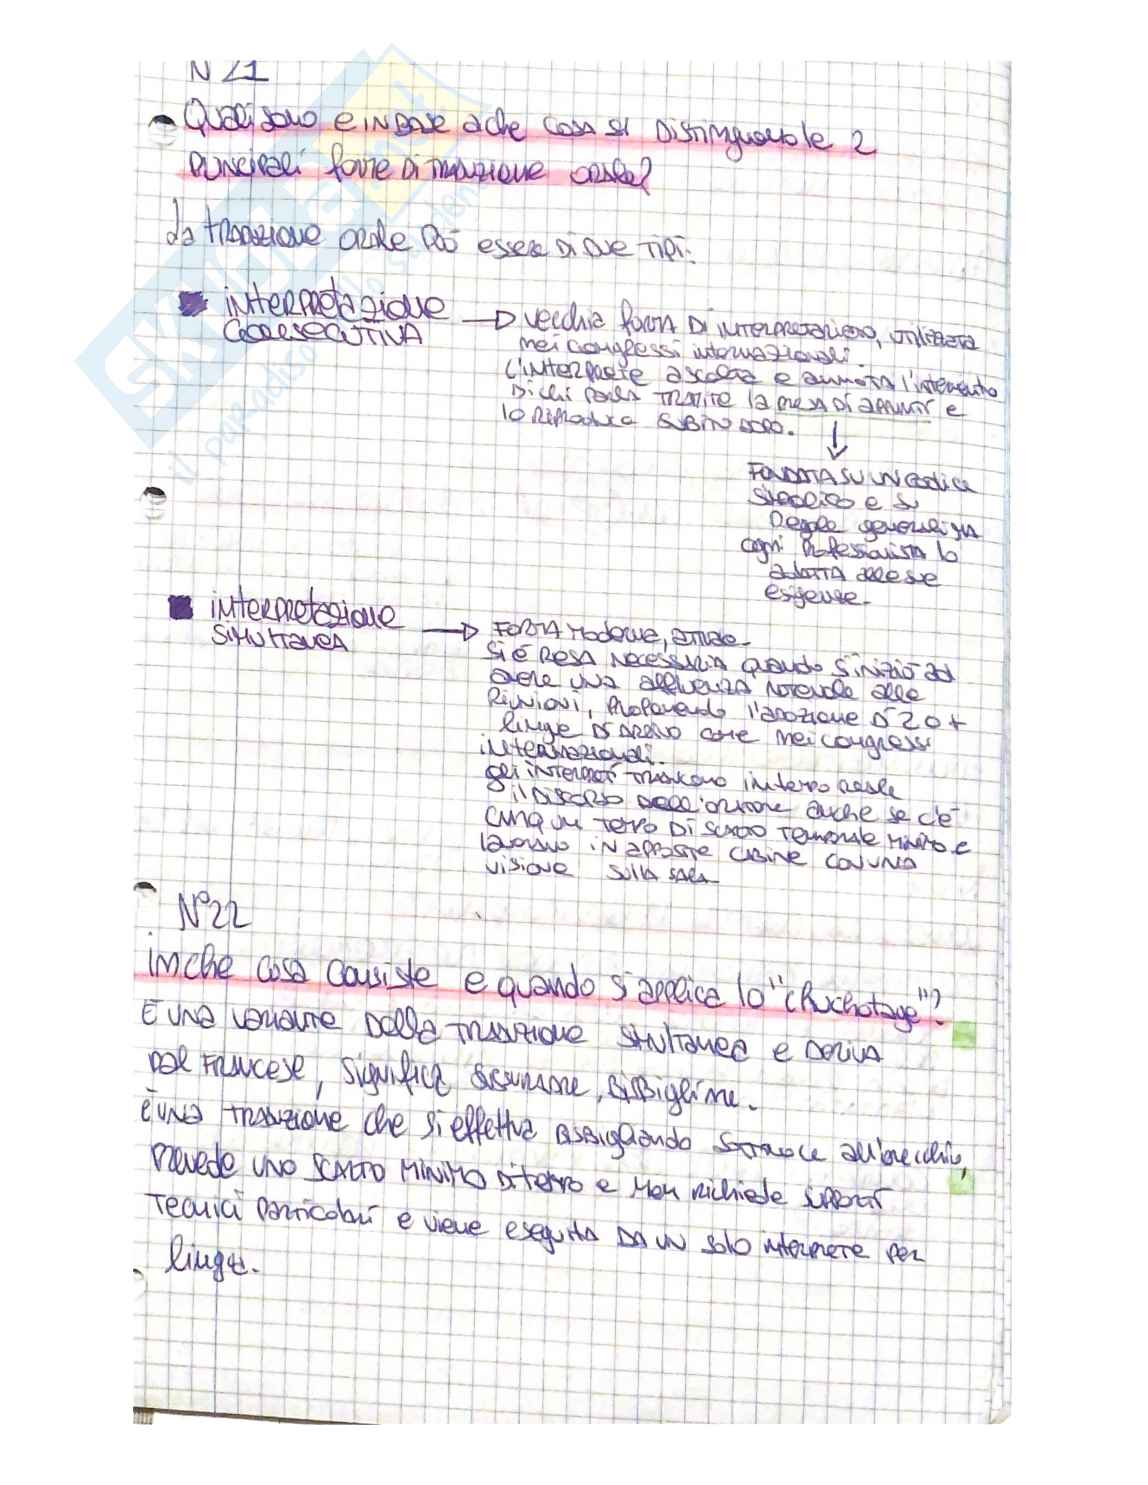 N 21
Quali sono e in base a che cosa si distinguono le 2
principali forme di traduzione orale?
La traduzione orale può essere di due tipi:
interpretazione
consecutiva
vecchia forma di interpretazione, utilizzata
nei congressi internazionali.
L'interprete ascolta e annota l'intervento
di chi parla tramite la presa di appunti e
lo riproduce subito dopo.
Fondata su un codice
simbolico e su
regole generali ma
ogni professionista lo
adatta alle sue
esigenze.
interpretazione
simultanea
forma moderna, attuale.
Si è resa necessaria quando s'iniziò ad
avere una affluenza notevole alle
riunioni, prevedendo l'adozione di 2 o +
lingue di arrivo come nei congressi
internazionali.
gli interpreti traducono in tempo reale
il discorso dell'oratore anche se c'è
cmq un tempo di scarto temporale minimo e
lavorano in apposite cabine con una
visione sulla sala
N°22
in che cosa consiste e quando s'applica lo "chuchotage"?
È una variante della traduzione simultanea e deriva
dal francese, significa sussurrare, bisbigliare.
è una traduzione che si effettua bisbigliando sottovoce all'orecchio,
prevede uno scarto minimo di tempo e non richiede supporti
tecnici particolari e viene eseguita da un solo interprete per
lingua.
SKUOLA.net
il paradiso dello studente